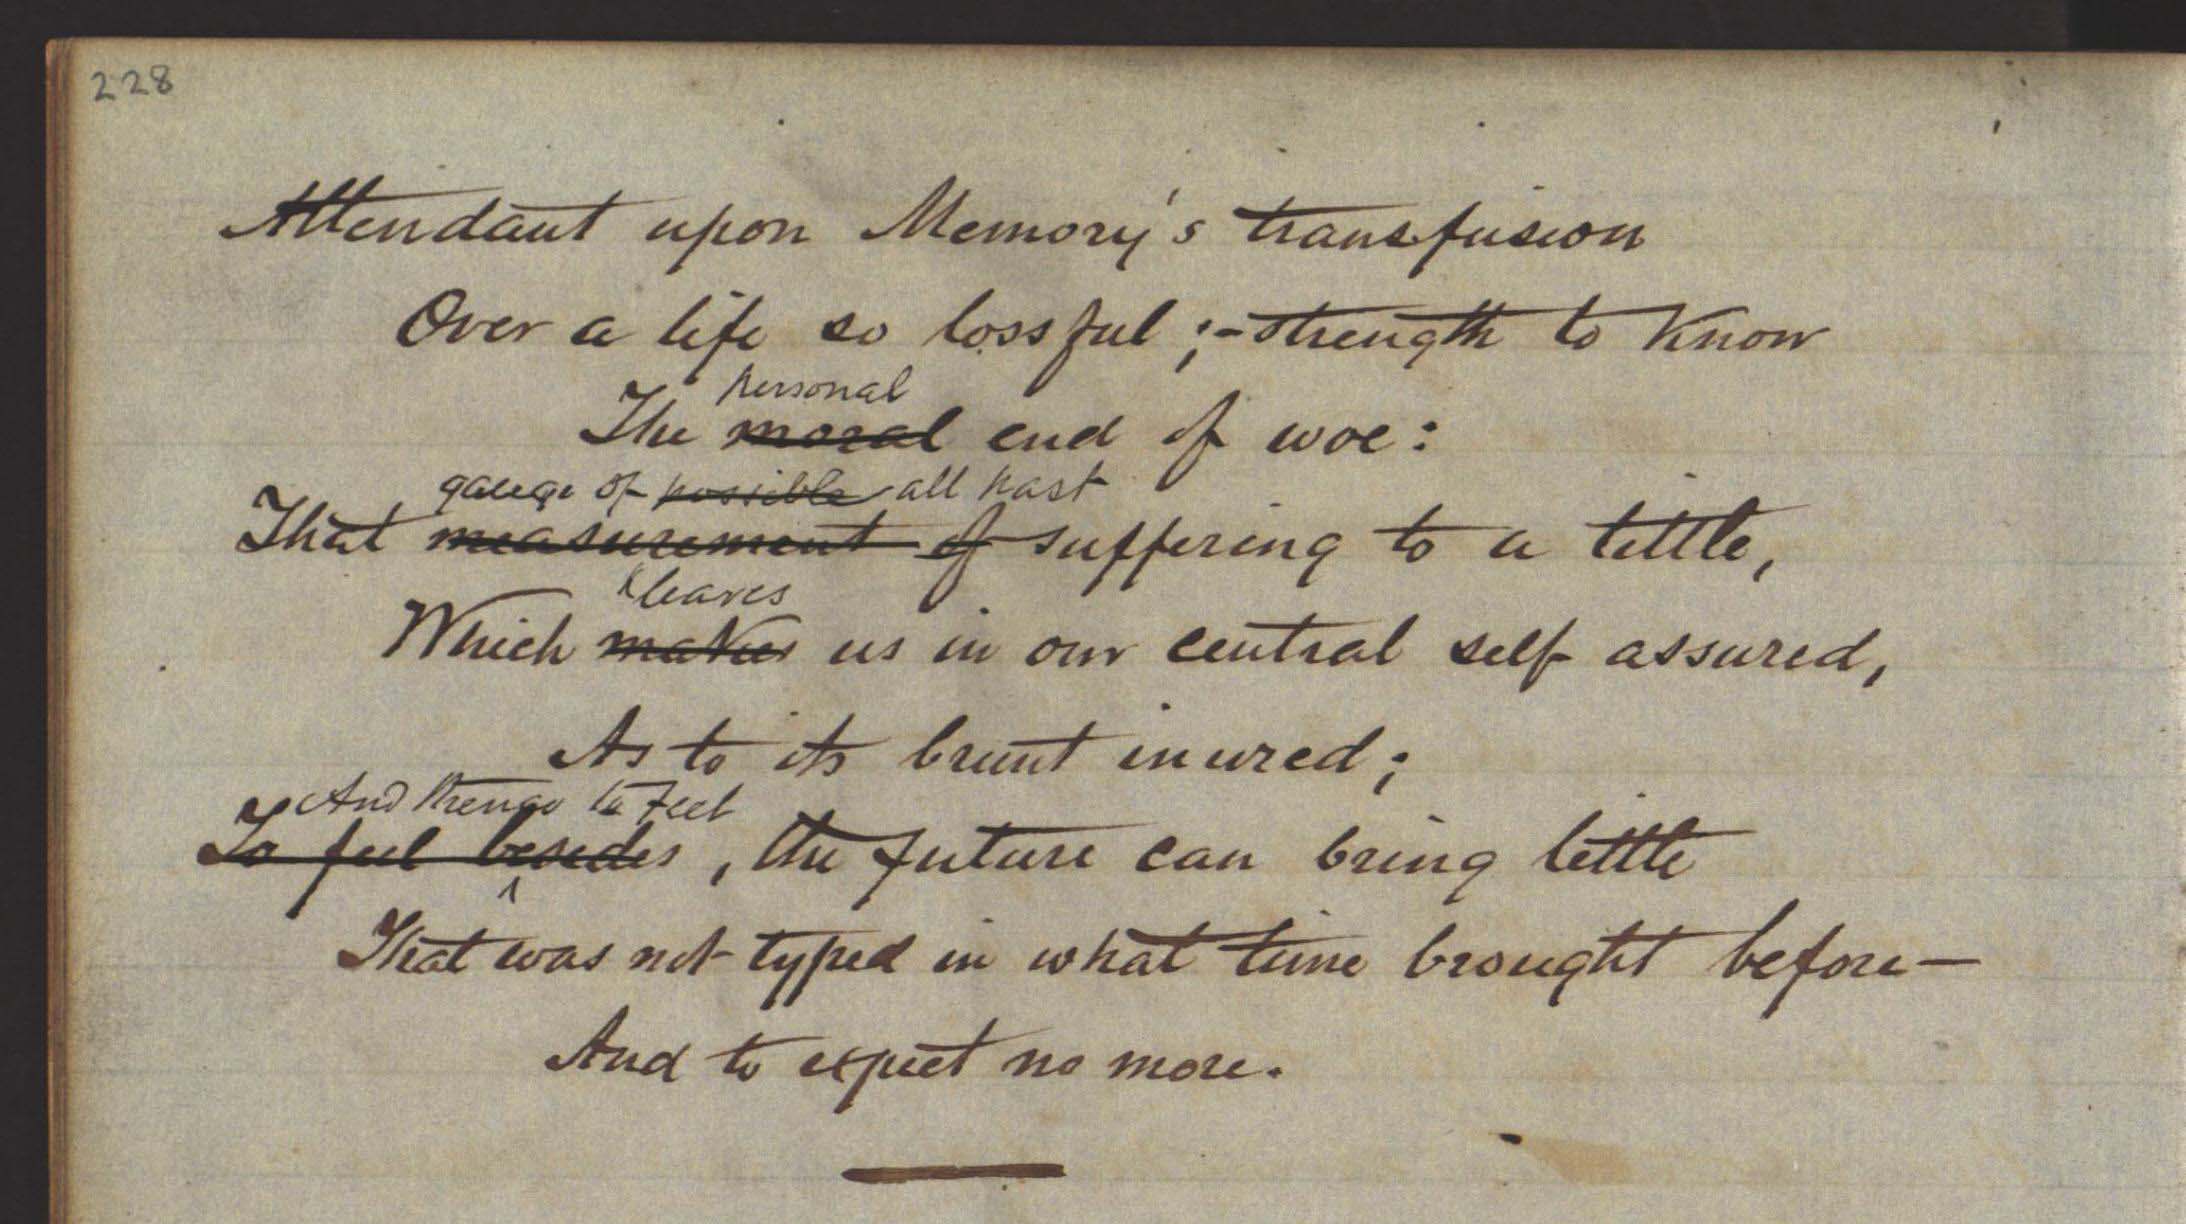 228
Attendant upon Memory's transfusion
Over a life so lossful;- strength to know
personal
The moral end of woe:
gauge of possible all past
That measurement of suffering to a tittle,
leaves
Which makes us in our central self assured,
As to its brunt inured;
And to feel
To feel besides, the future can bring little
That was not typed in what time brought before—
And to expect no more.